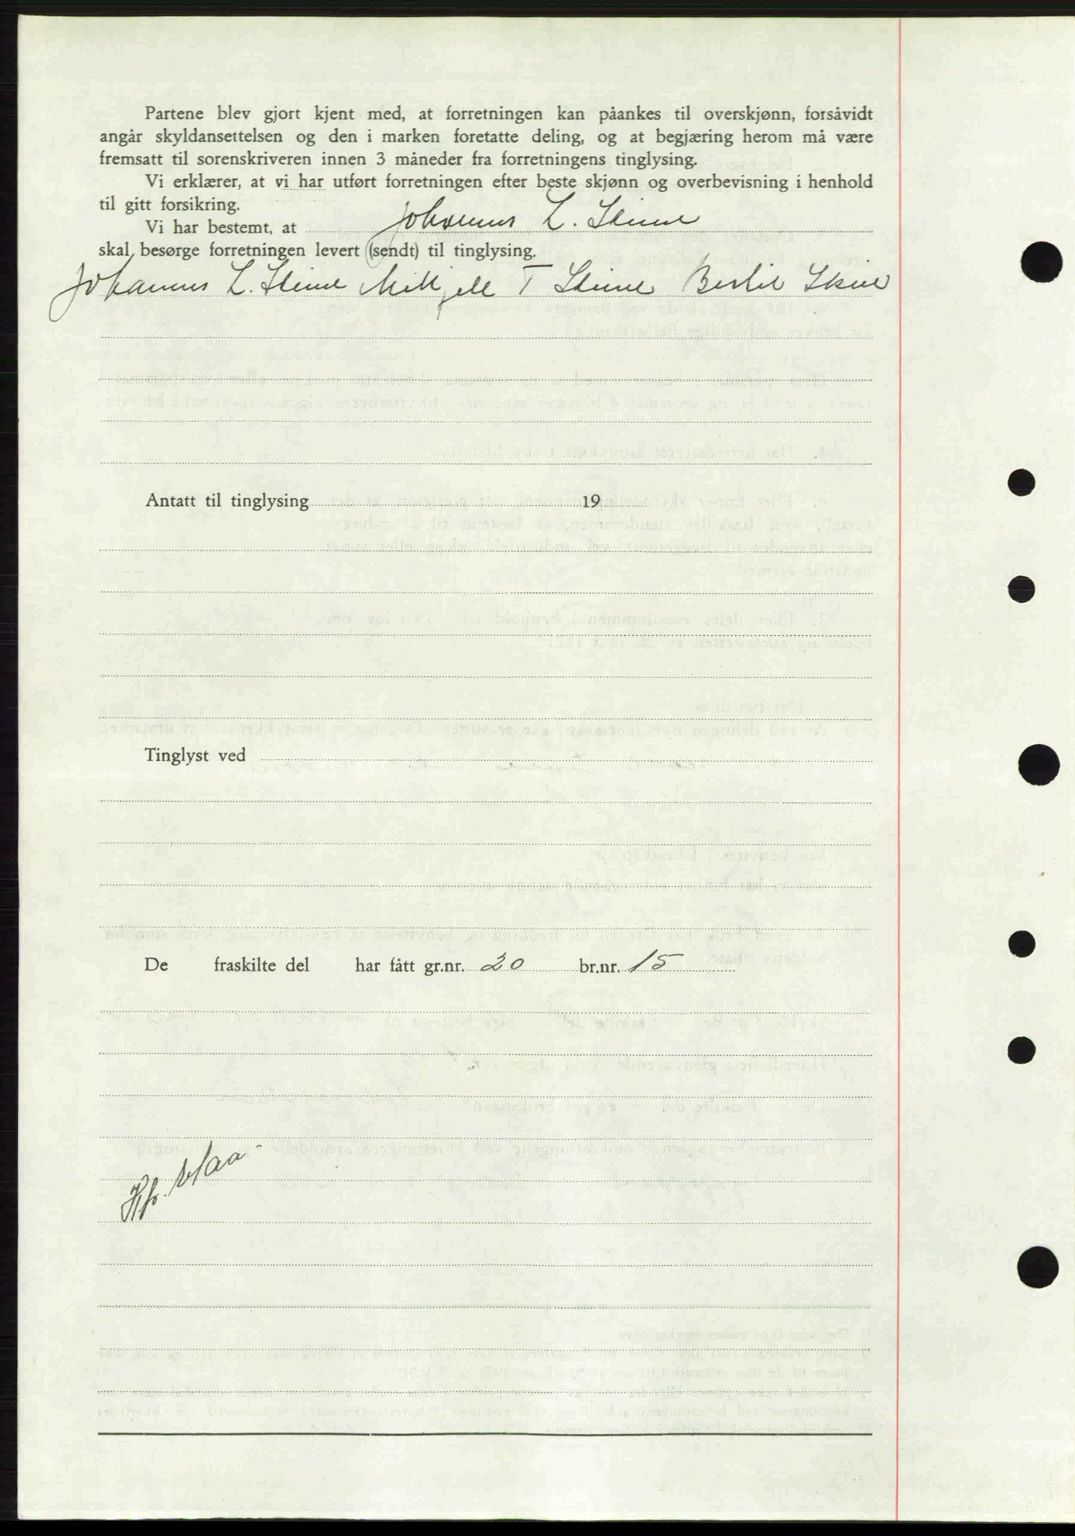 Partene blev gjort kjent med, at forretningen kan påankes til overskjønn, forsåvidt
angår skyldansettelsen og den i marken foretatte deling, og at begjæring herom må være
fremsatt til sorenskriveren innen 3 måneder fra forretningens tinglysing.
Vi erklærer, at vi har utført forretningen efter beste skjønn og overbevisning i henhold
til gitt forsikring.
Vi har bestemt, at Johannes L. Skeine
skal besørge forretningen levert (sendt) til tinglysing.
Johannes L. Skeine Mikjell T Skeine
Antatt til tinglysing 19
Tinglyst ved
De fraskilte del har fått gr.nr. 20 br.nr. 15